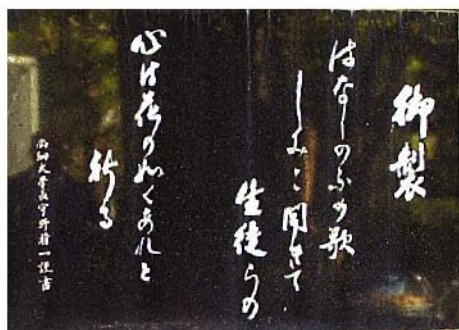 御製
はなしのふの歌
しみ〱聞きて
生徒らの
心は花の如くあれと
祈る
尚絅大学長宇野精一謹書